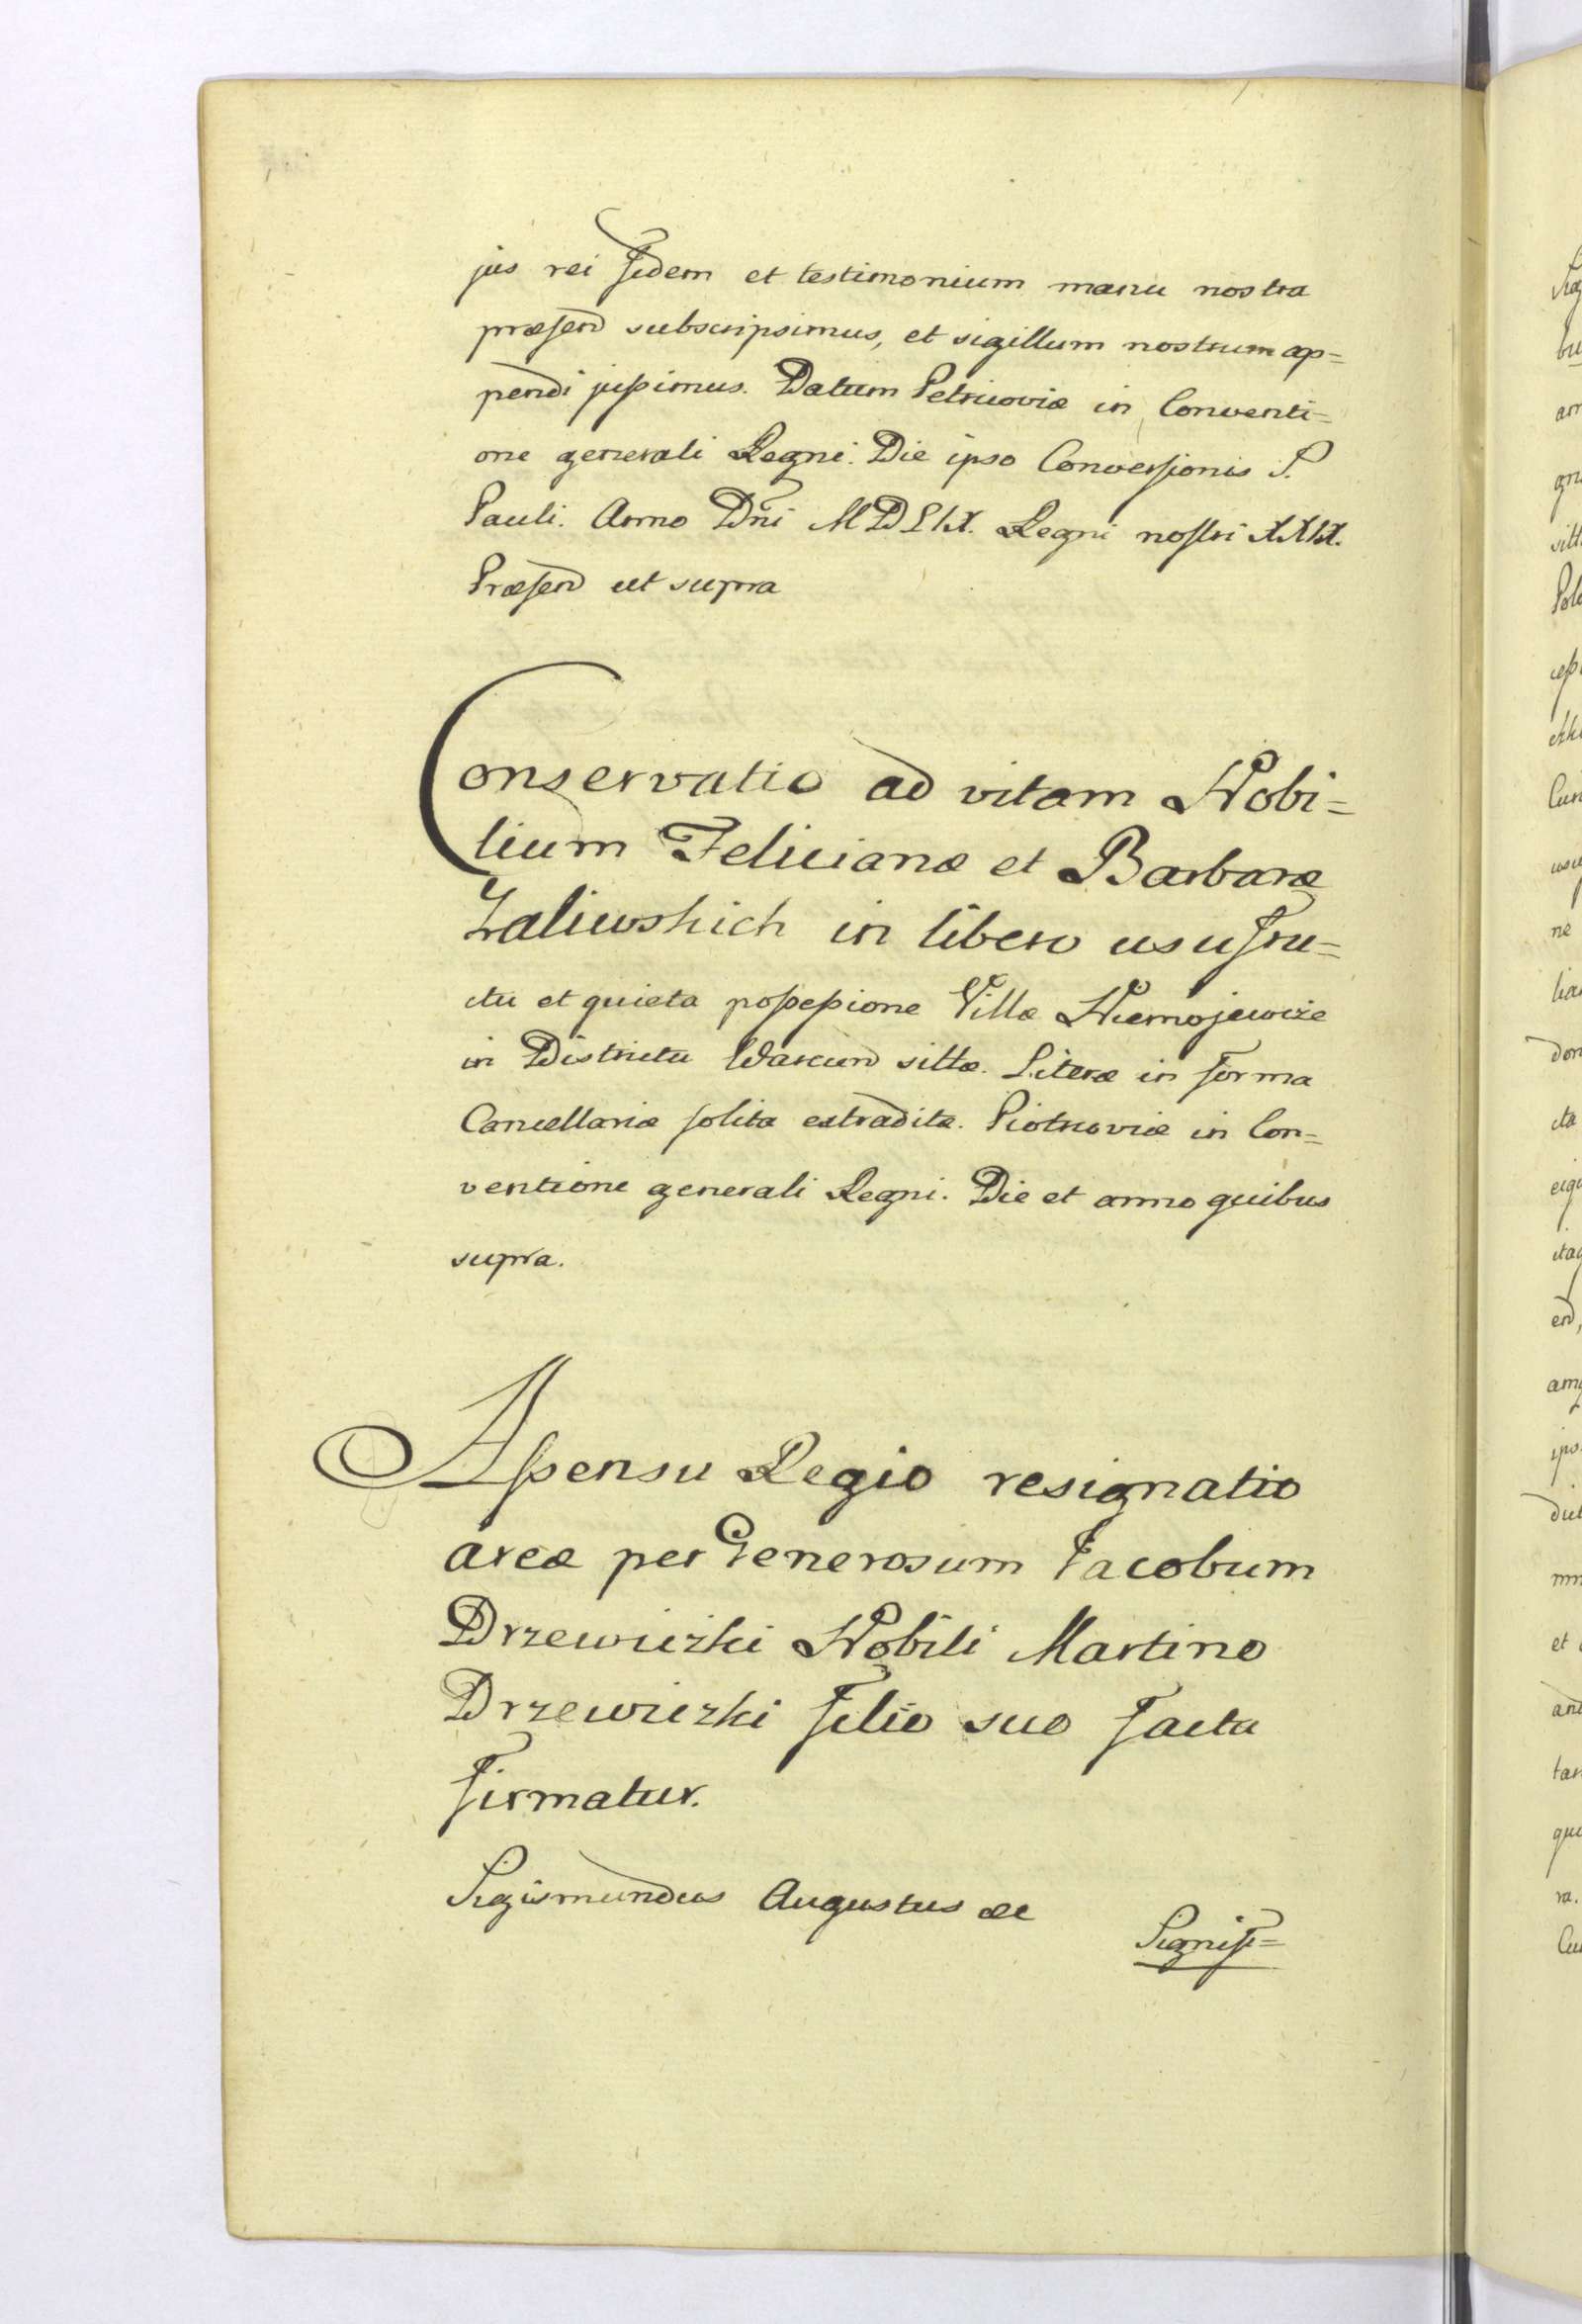 jus rei fidem et testimonium manu nostra
præsend subscripsimus, et sigillum nostrum ap=
pendi jussimus. Datum Petricoviæ in Conventi=
one generali Regni. Die ipso Conversionis S.
Pauli. Anno Dni MDLIX. Regni nostri XXIX.
Præsend ut supra
Conservatio ad vitam Nobi=
lium Felicianæ et Barbaræ
Zaliwskich in libero usufru=
ctu et quieta possessione Villæ Niemojewize
in Districtu Warcien sittæ. Literæ in forma
Cancellariæ solita extraditæ. Piotrcoviæ in Con=
ventione generali Regni. Die et anno quibus
supra.
Assensu Regio resignatio
areæ per Generosum Jacobum
Drzewiczki Nobili Martino
Drzewiczki filio suo facta
firmatur.
Sigismundus Augustus &c
Signifi=